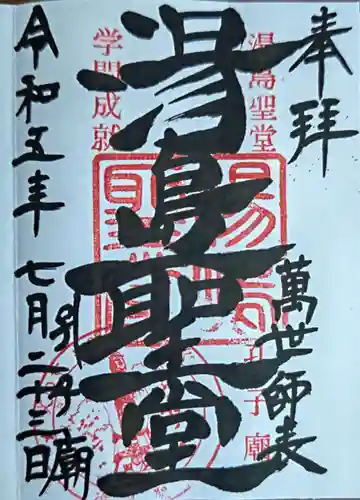 奉拝
萬世師表
湯島聖堂
孔子廟
湯島聖堂
学問成就
令和五年七月二十三日